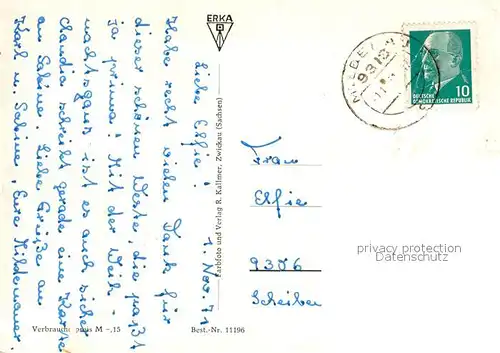 1. Nov. 71
Liebe Elfie!
Habe recht vielen Dank für
dieser schönen Weste, die paßt
ja prima! Mit der Weih-
nachtsgans ist es auch sicher
Claudia schreibt gerade eine Karte
an Sabine. Liebe Grüße, an
Karl u. Sabine, Eure
ERKA
Farbfoto und Verlag R. Kallmer, Zwickau (Sachsen)
10
DEUTSCHE
DEMOKRATISCHE REPUBLIK
Frau
Elfie
privacy protection
Datenschutz
9306
Scheiben
Verbraucherpreis M -,15
Best.-Nr. 11196